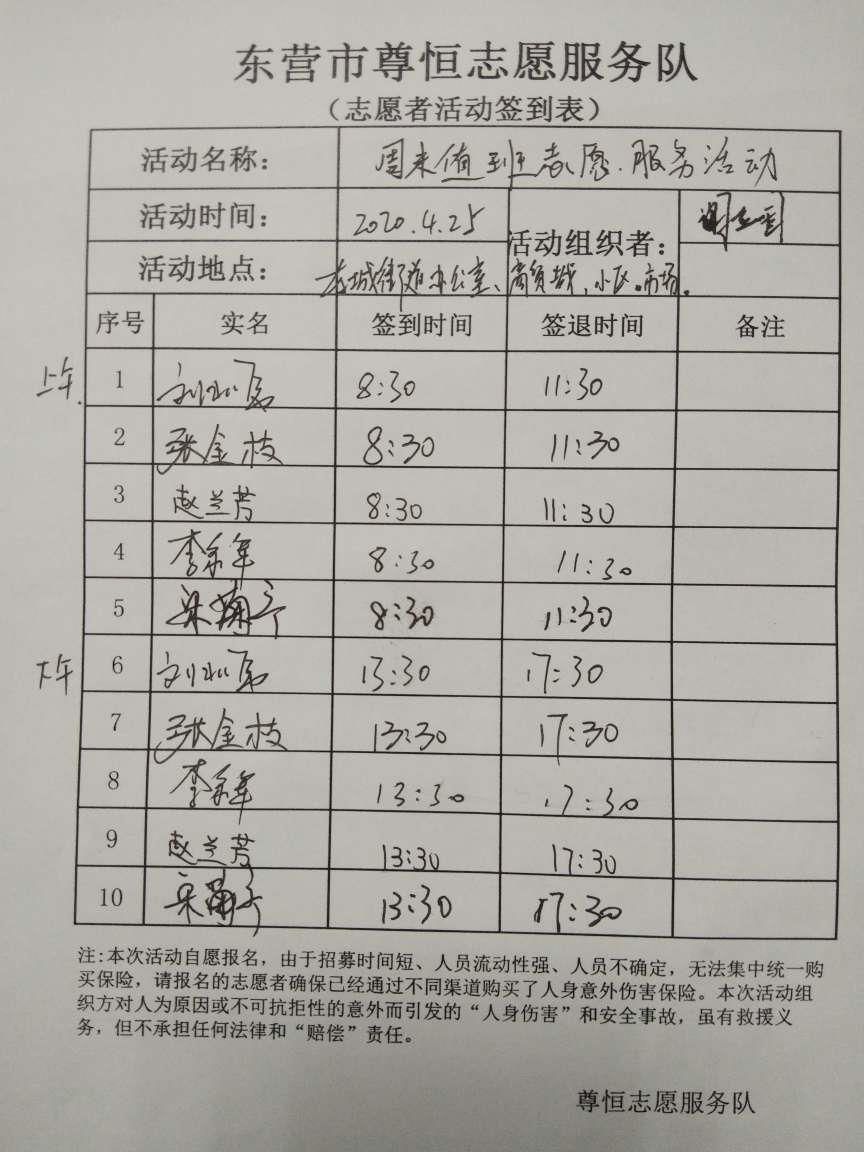 东营市尊恒志愿服务队
（志愿者活动签到表）
活动名称： 周末值班志愿服务活动
活动时间： 2020.4.25 活动组织者：
活动地点： 老城街道办公室、商贸城、小区。市场。
序号 实名 签到时间 签退时间 备注
上午 1 8:30 11:30
2 张金枝 8:30 11:30
3 赵兰芳 8:30 11:30
4 李 8:30 11:30
5 8:30 11:30
下午 6 13:30 17:30
7 张金枝 13:30 17:30
8 李 13:30 17:30
9 赵兰芳 13:30 17:30
10 13:30 17:30
注:本次活动自愿报名，由于招募时间短、人员流动性强、人员不确定，无法集中统一购
买保险，请报名的志愿者确保已经通过不同渠道购买了人身意外伤害保险。本次活动组
织方对人为原因或不可抗拒性的意外而引发的“人身伤害”和安全事故，虽有救援义
务，但不承担任何法律和“赔偿”责任。
尊恒志愿服务队